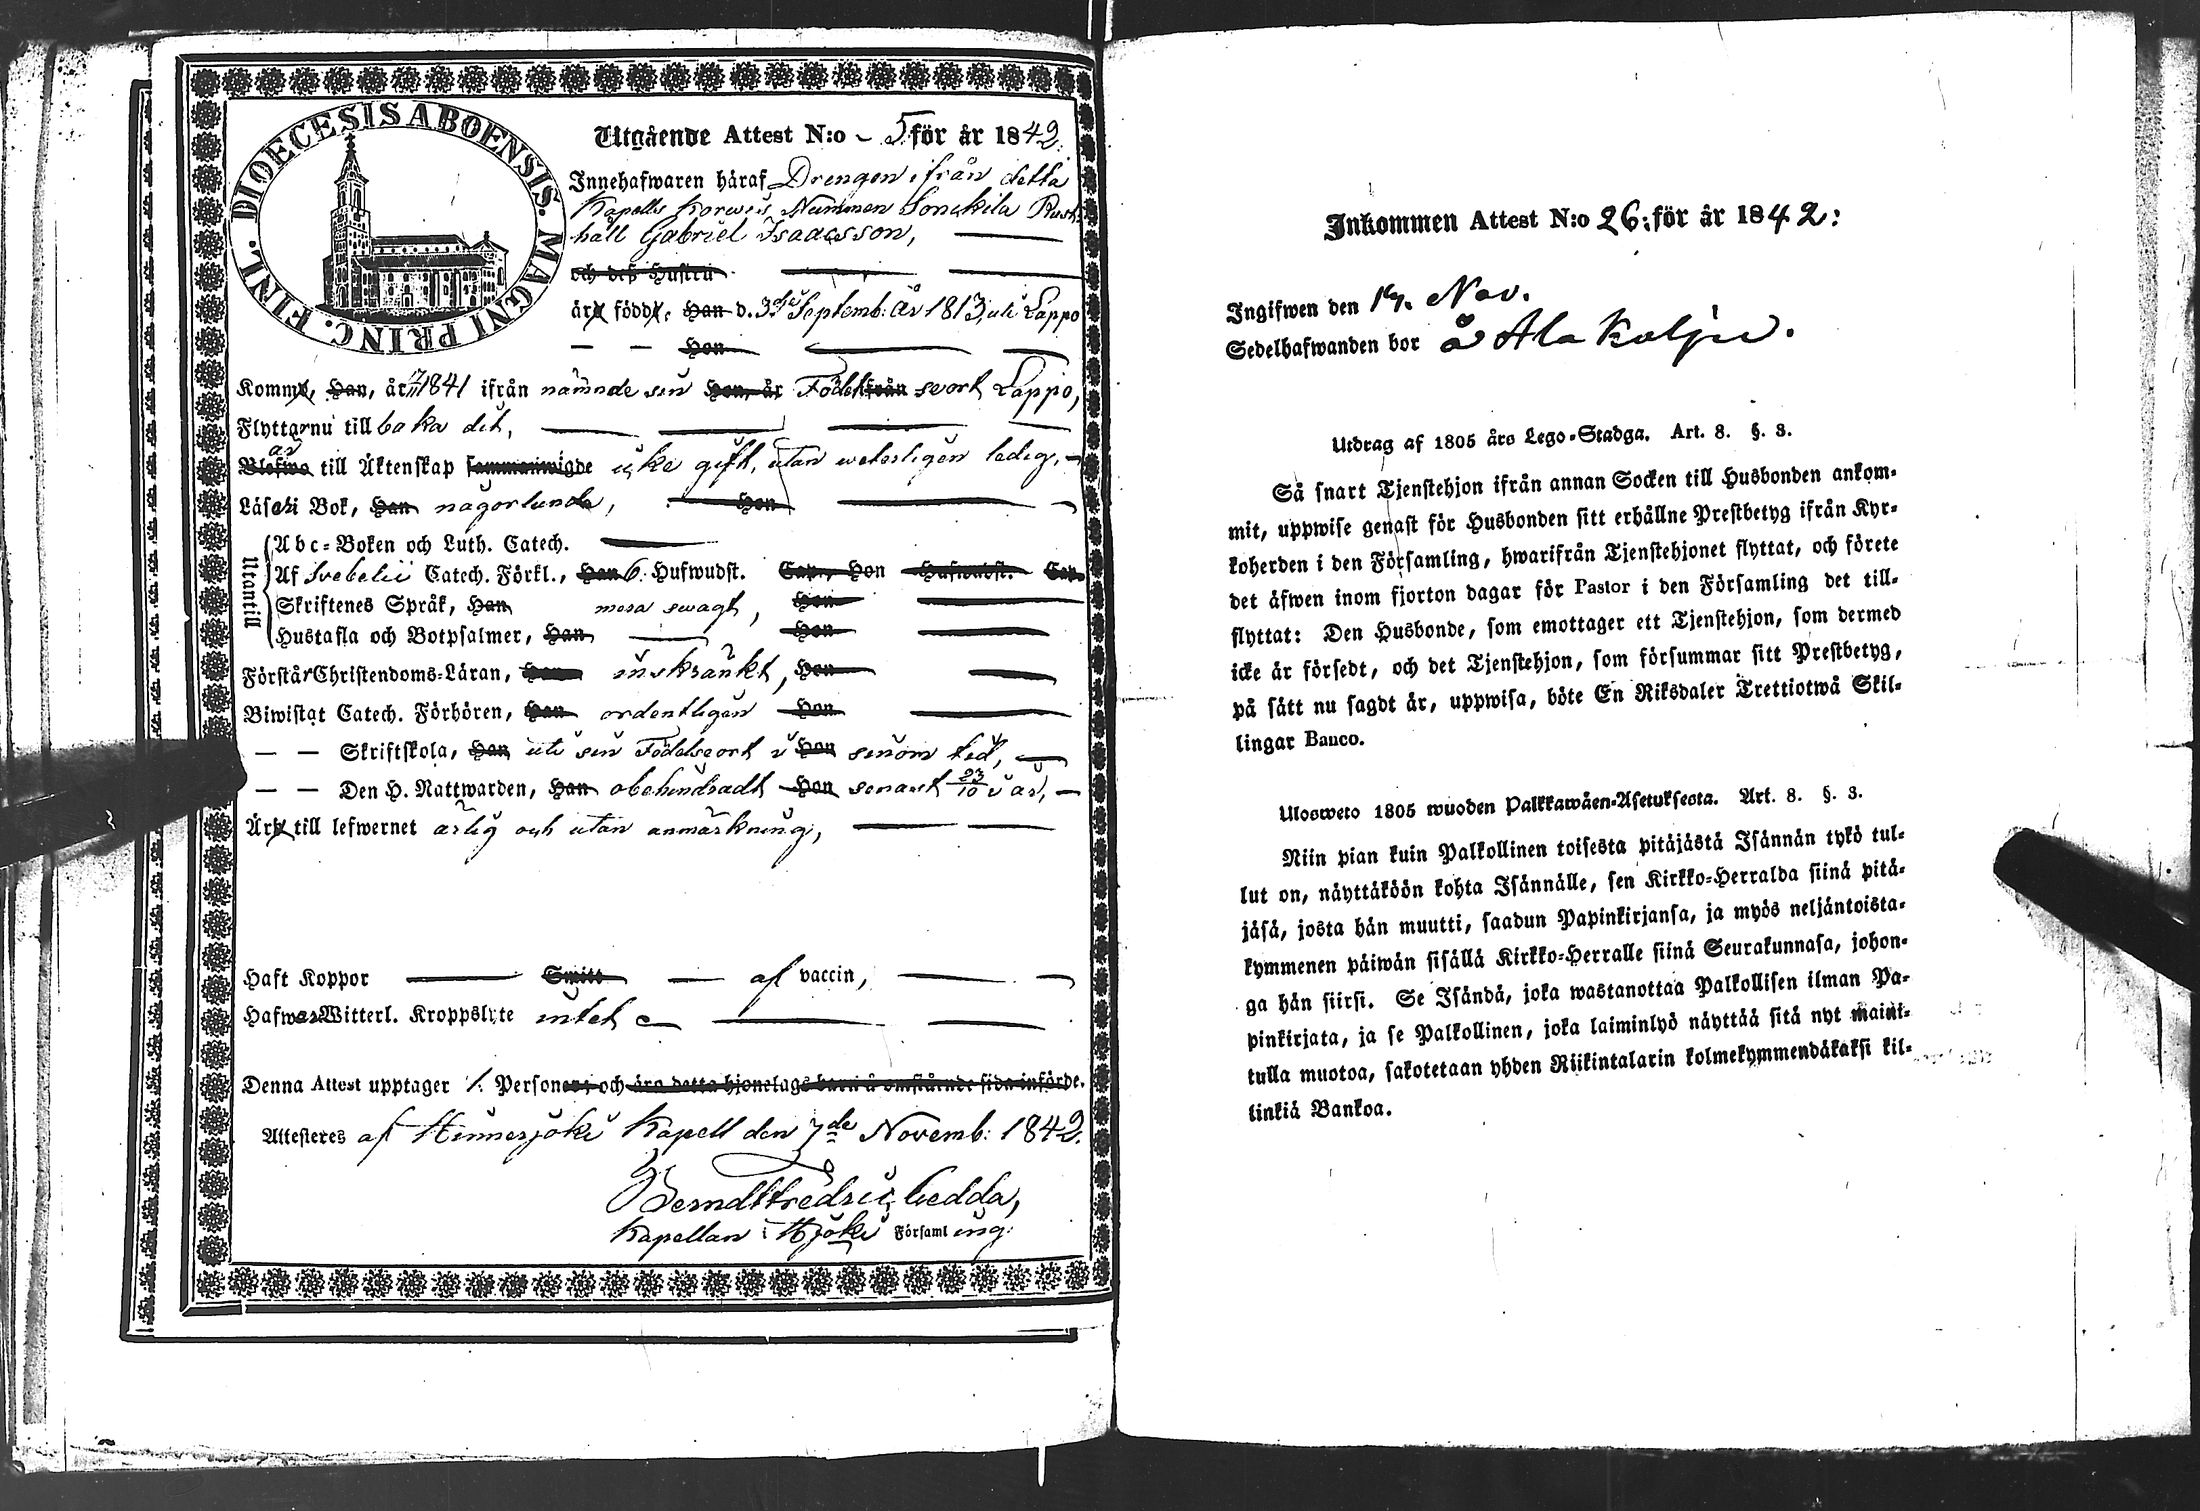 DIOECESIS ABOENSIS. MAGNI PRINC. FINL.
Utgående Attest N:o 5 för år 1842.
Innehafwaren häraf Drengen ifrån detta
Kapells Nummen Rust
håll Gabriel Isaacsson,
och deß Hustru
är född, Han d. 3de Septemb: År 1813, uti Lappo
Hon
Komm, Han, år 1841 ifrån nämnde sin Hon, år Födelseort Lappo,
Flyttar nu till baka dit,
är
Blefwo till Äktenskap sammanwigde icke gift, utan weterligen ledig,
Läser i Bok, Han någorlunda, Hon
Utantill
Abc-Boken och Luth. Catech.
Af Svebelii Catech. Förkl., Han 6. Hufwudst. Cap., Hon Hufwudst. Cap.
Skriftenes Språk, Han mera swagt, Hon
Hustafla och Botpsalmer, Han Hon
Förstår Christendoms-Läran, Han inskränkt, Hon
Biwistat Catech. Förhören, Han ordentligen Hon
— — Skriftskola, Han uti sin Födelseort i Hon sinom tid,
— — Den H. Nattwarden, Han obehindradt Hon senast 23/10 i år,
Är till lefwernet ärlig och utan anmärkning,
Haft Koppor Smitt af vaccin,
Hafwer Witterl. Kroppslyte intet
Denna Attest upptager 1. Personer, och äro detta hjonelags barn å omstående sida införde.
Attesteres af Hinnerjoki Kapell den 7de Novemb: 1842.
Berndt Fredric Cedda,
Kapellan i Hjoki Församling.
Inkommen Attest N:o 26: för år 1842:
Ingifwen den 17. Nov.
Sedelhafwanden bor å Ala Kolju.
Utdrag af 1805 års Lego-Stadga. Art. 8. §. 3.
Så snart Tjenstehjon ifrån annan Socken till Husbonden ankom-
mit, uppwise genast för Husbonden sitt erhållne Prestbetyg ifrån Kyr-
koherden i den Församling, hwarifrån Tjenstehjonet flyttat, och förete
det äfwen inom fjorton dagar för Pastor i den Församling det till-
flyttat: Den Husbonde, som emottager ett Tjenstehjon, som dermed
icke är försedt, och det Tjenstehjon, som försummar sitt Prestbetyg,
på sätt nu sagdt är, uppwisa, böte En Riksdaler Trettiotwå Skil-
lingar Banco.
Ulosweto 1805 wuoden Palkkawäen-Asetuksesta. Art. 8. §. 3.
Niin pian kuin Palkollinen toisesta pitäjästä Isännän tykö tul-
lut on, näyttäköön kohta Isännälle, sen Kirkko-Herralda siinä pitä-
jäsä, josta hän muutti, saadun Papinkirjansa, ja myös neljäntoista-
kymmenen päiwän sisällä Kirkko-Herralle siinä Seurakunnasa, johon-
ga hän siirsi. Se Isändä, joka wastanottaa Palkollisen ilman Pa-
pinkirjata, ja se Palkollinen, joka laiminlyö näyttää sitä nyt mainit-
tulla muotoa, sakotetaan yhden Riikintalarin kolmekymmendäkaksi kil-
linkiä Bankoa.